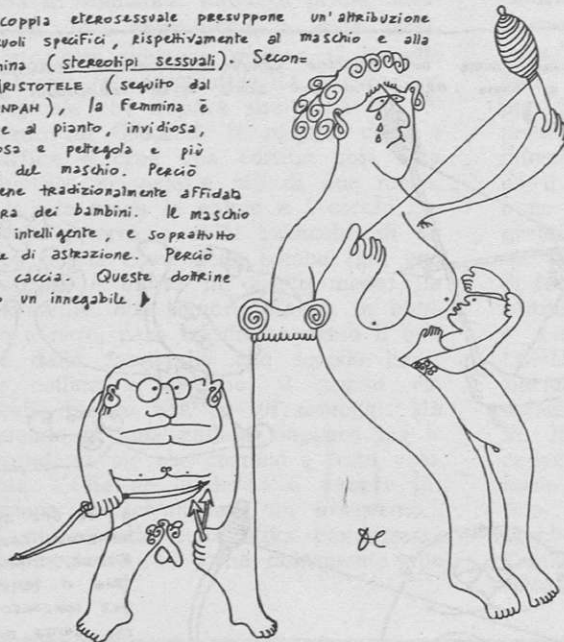 coppia eterosessuale presuppone un'attribuzione
ruoli specifici, rispettivamente al maschio e alla
mina (stereotipi sessuali). Secon=
ARISTOTELE (seguito dal
NPAH), la Femmina è
e al pianto, invidiosa,
osa e pettegola e più
del maschio. Perciò
ene tradizionalmente affidata
ra dei bambini. Il maschio
intelligente, e soprattutto
e di astrazione. Perciò
caccia. Queste dottrine
o un innegabile